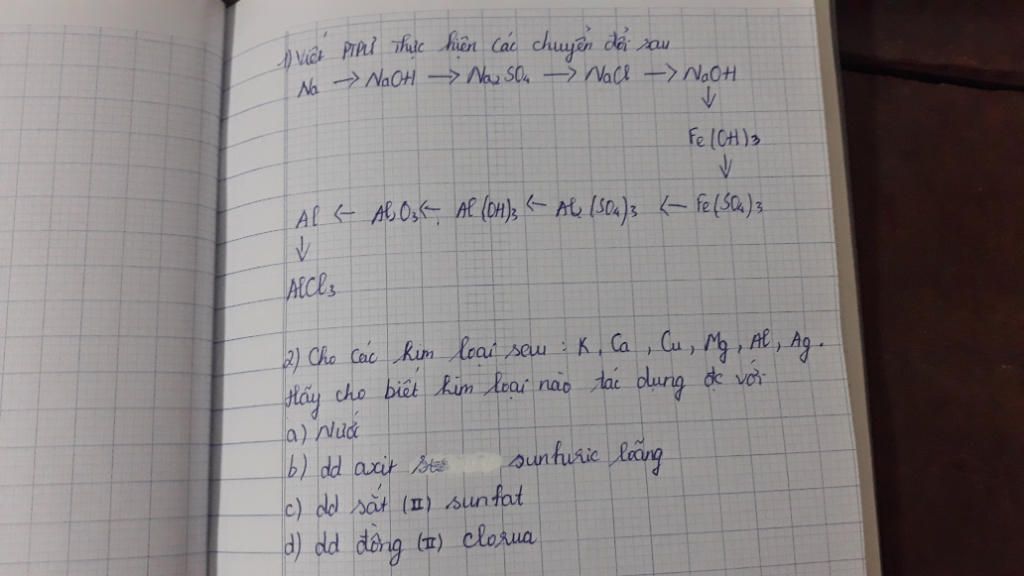 1) Viết PTPƯ thực hiện các chuyển đổi sau
Na → NaOH → Na₂SO₄ → NaCl → NaOH
↓
Fe(OH)₃
↓
Al ← Al₂O₃ ← Al(OH)₃ ← Al₂(SO₄)₃ ← Fe(SO₄)₃
↓
AlCl₃
2) Cho các kim loại sau : K, Ca, Cu, Mg, Al, Ag.
Hãy cho biết kim loại nào tác dụng đc với
a) Nước
b) dd axit sunfuric loãng
c) dd sắt (II) sunfat
d) dd đồng (II) clorua